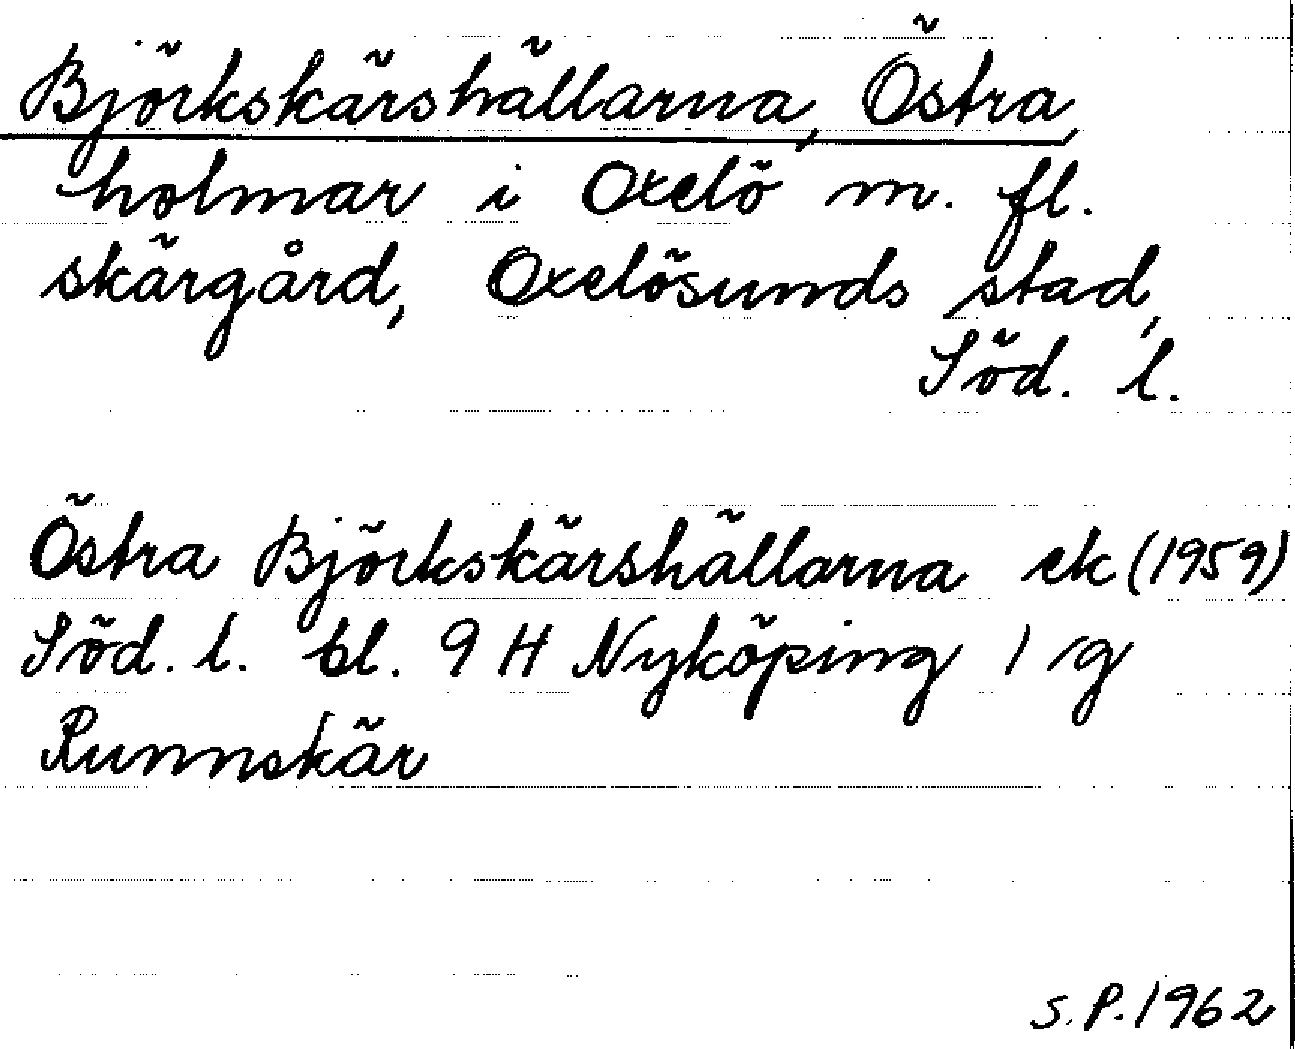 Björkskärshällarna, Östra,
holmar i Oxelö m. fl.
skärgård, Oxelösunds stad,
Söd. l.
Östra Björkskärshällarna ek (1959)
Söd. l. bl. 9 H Nyköping 1 g
Runnskär
S. P. 1962